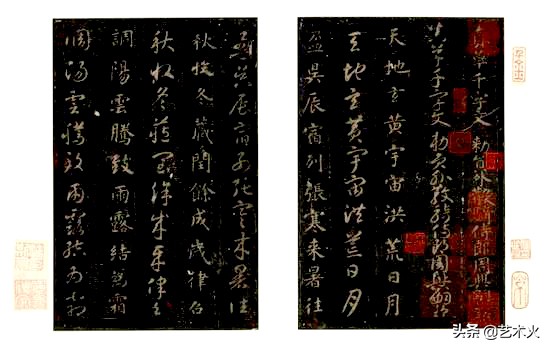 真草千字文勑員外散騎侍郎周興嗣
真草千字文勑員外散騎侍郎周興嗣
天地玄黃宇宙洪荒日月
天地玄黃宇宙洪荒日月
盈昃辰宿列張寒来暑往
盈昃辰宿列張寒来暑往
秋收冬藏閏餘成歲律呂
秋收冬藏閏餘成歲律呂
調陽雲騰致雨露結為霜
調陽雲騰致雨露結為霜
头条 @艺术火